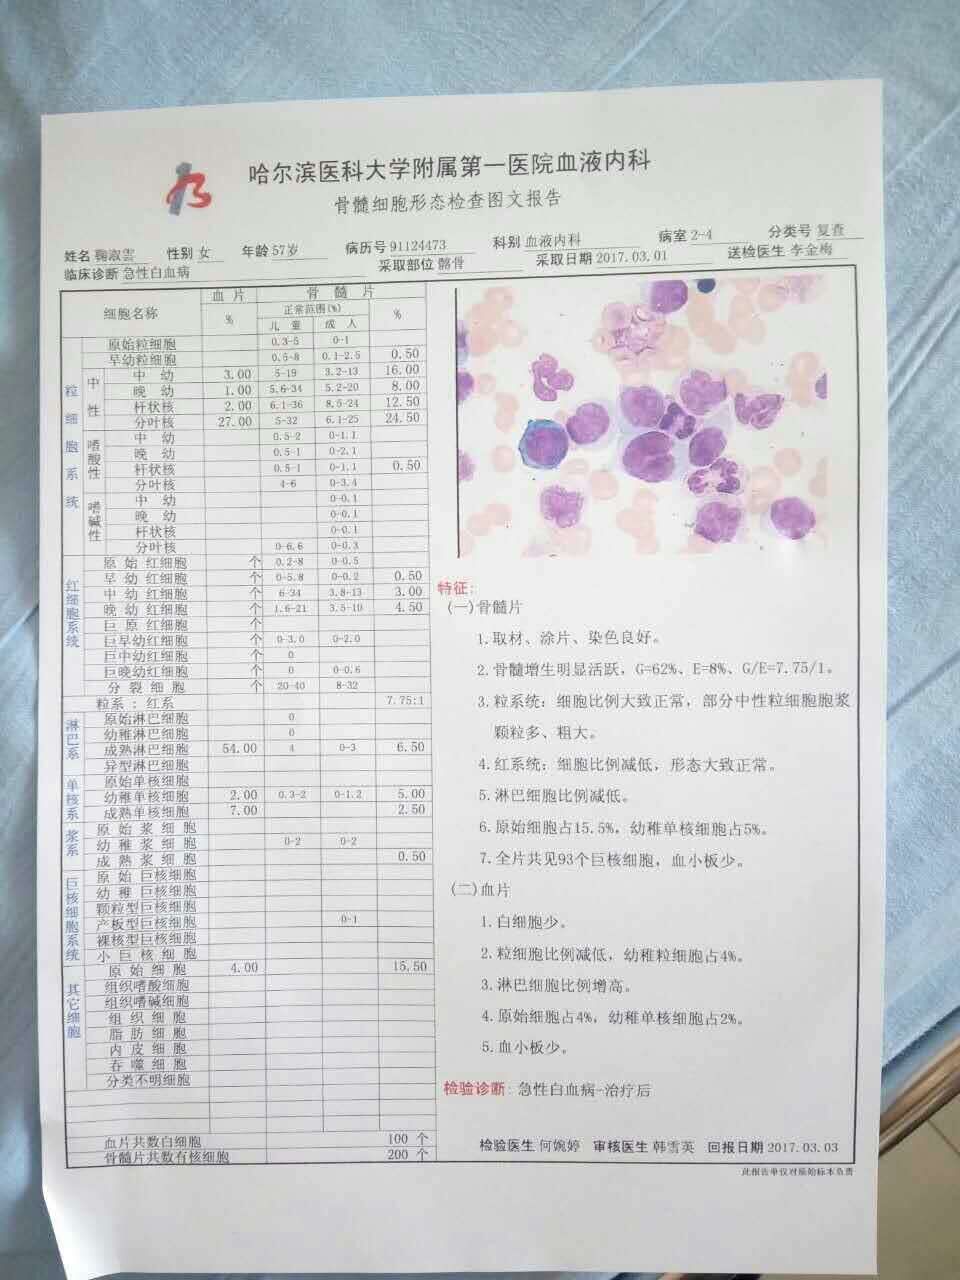 哈尔滨医科大学附属第一医院血液内科
骨髓细胞形态检查图文报告
姓名 鞠淑雲 性别 女 年龄 57岁 病历号 91124473 科别 血液内科 病室 2-4 分类号 复查
临床诊断 急性白血病 采取部位 髂骨 采取日期 2017.03.01 送检医生 李金梅
细胞名称 血片 % 骨髓片 正常范围(%) 儿童 成人 %
粒细胞系统
原始粒细胞 0.3-5 0-1
早幼粒细胞 0.5-8 0.1-2.5 0.50
中性
中幼 3.00 5-19 3.2-13 16.00
晚幼 1.00 5.6-34 5.2-20 8.00
杆状核 2.00 6.1-36 8.5-24 12.50
分叶核 27.00 5-32 6.1-25 24.50
嗜酸性
中幼 0.5-2 0-1.1
晚幼 0.5-1 0-2.1
杆状核 0.5-1 0-1.1 0.50
分叶核 4-6 0-3.4
嗜碱性
中幼 0-0.1
晚幼 0-0.1
杆状核 0-0.1
分叶核 0-6.6 0-0.3
红细胞系统
原始红细胞 个 0.2-8 0-0.5
早幼红细胞 个 0-5.8 0-0.2 0.50
中幼红细胞 个 6-34 3.8-13 3.00
晚幼红细胞 个 1.6-21 3.5-10 4.50
巨原红细胞 个
巨早幼红细胞 个 0-3.0 0-2.0
巨中幼红细胞 个 0
巨晚幼红细胞 个 0 0-0.6
分裂细胞 个 20-40 8-32
粒系：红系 7.75:1
淋巴系
原始淋巴细胞 0
幼稚淋巴细胞 0
成熟淋巴细胞 54.00 4 0-3 6.50
异型淋巴细胞
单核系
原始单核细胞
幼稚单核细胞 2.00 0.3-2 0-1.2 5.00
成熟单核细胞 7.00 2.50
浆系
原始浆细胞
幼稚浆细胞 0-2 0-2
成熟浆细胞 0.50
巨核细胞系统
原始巨核细胞
幼稚巨核细胞
颗粒型巨核细胞
产板型巨核细胞 0-1
裸核型巨核细胞
小巨核细胞
其它细胞
原始细胞 4.00 15.50
组织嗜酸细胞
组织嗜碱细胞
组织细胞
脂肪细胞
内皮细胞
吞噬细胞
分类不明细胞
血片共数白细胞 100 个
骨髓片共数有核细胞 200 个
特征:
(一)骨髓片
1.取材、涂片、染色良好。
2.骨髓增生明显活跃，G=62%、E=8%、G/E=7.75/1。
3.粒系统：细胞比例大致正常，部分中性粒细胞胞浆
颗粒多、粗大。
4.红系统：细胞比例减低，形态大致正常。
5.淋巴细胞比例减低。
6.原始细胞占15.5%，幼稚单核细胞占5%。
7.全片共见93个巨核细胞，血小板少。
(二)血片
1.白细胞少。
2.粒细胞比例减低，幼稚粒细胞占4%。
3.淋巴细胞比例增高。
4.原始细胞占4%，幼稚单核细胞占2%。
5.血小板少。
检验诊断: 急性白血病-治疗后
检验医生 何婉婷 审核医生 韩雪英 回报日期 2017.03.03
此报告单仅对原始标本负责